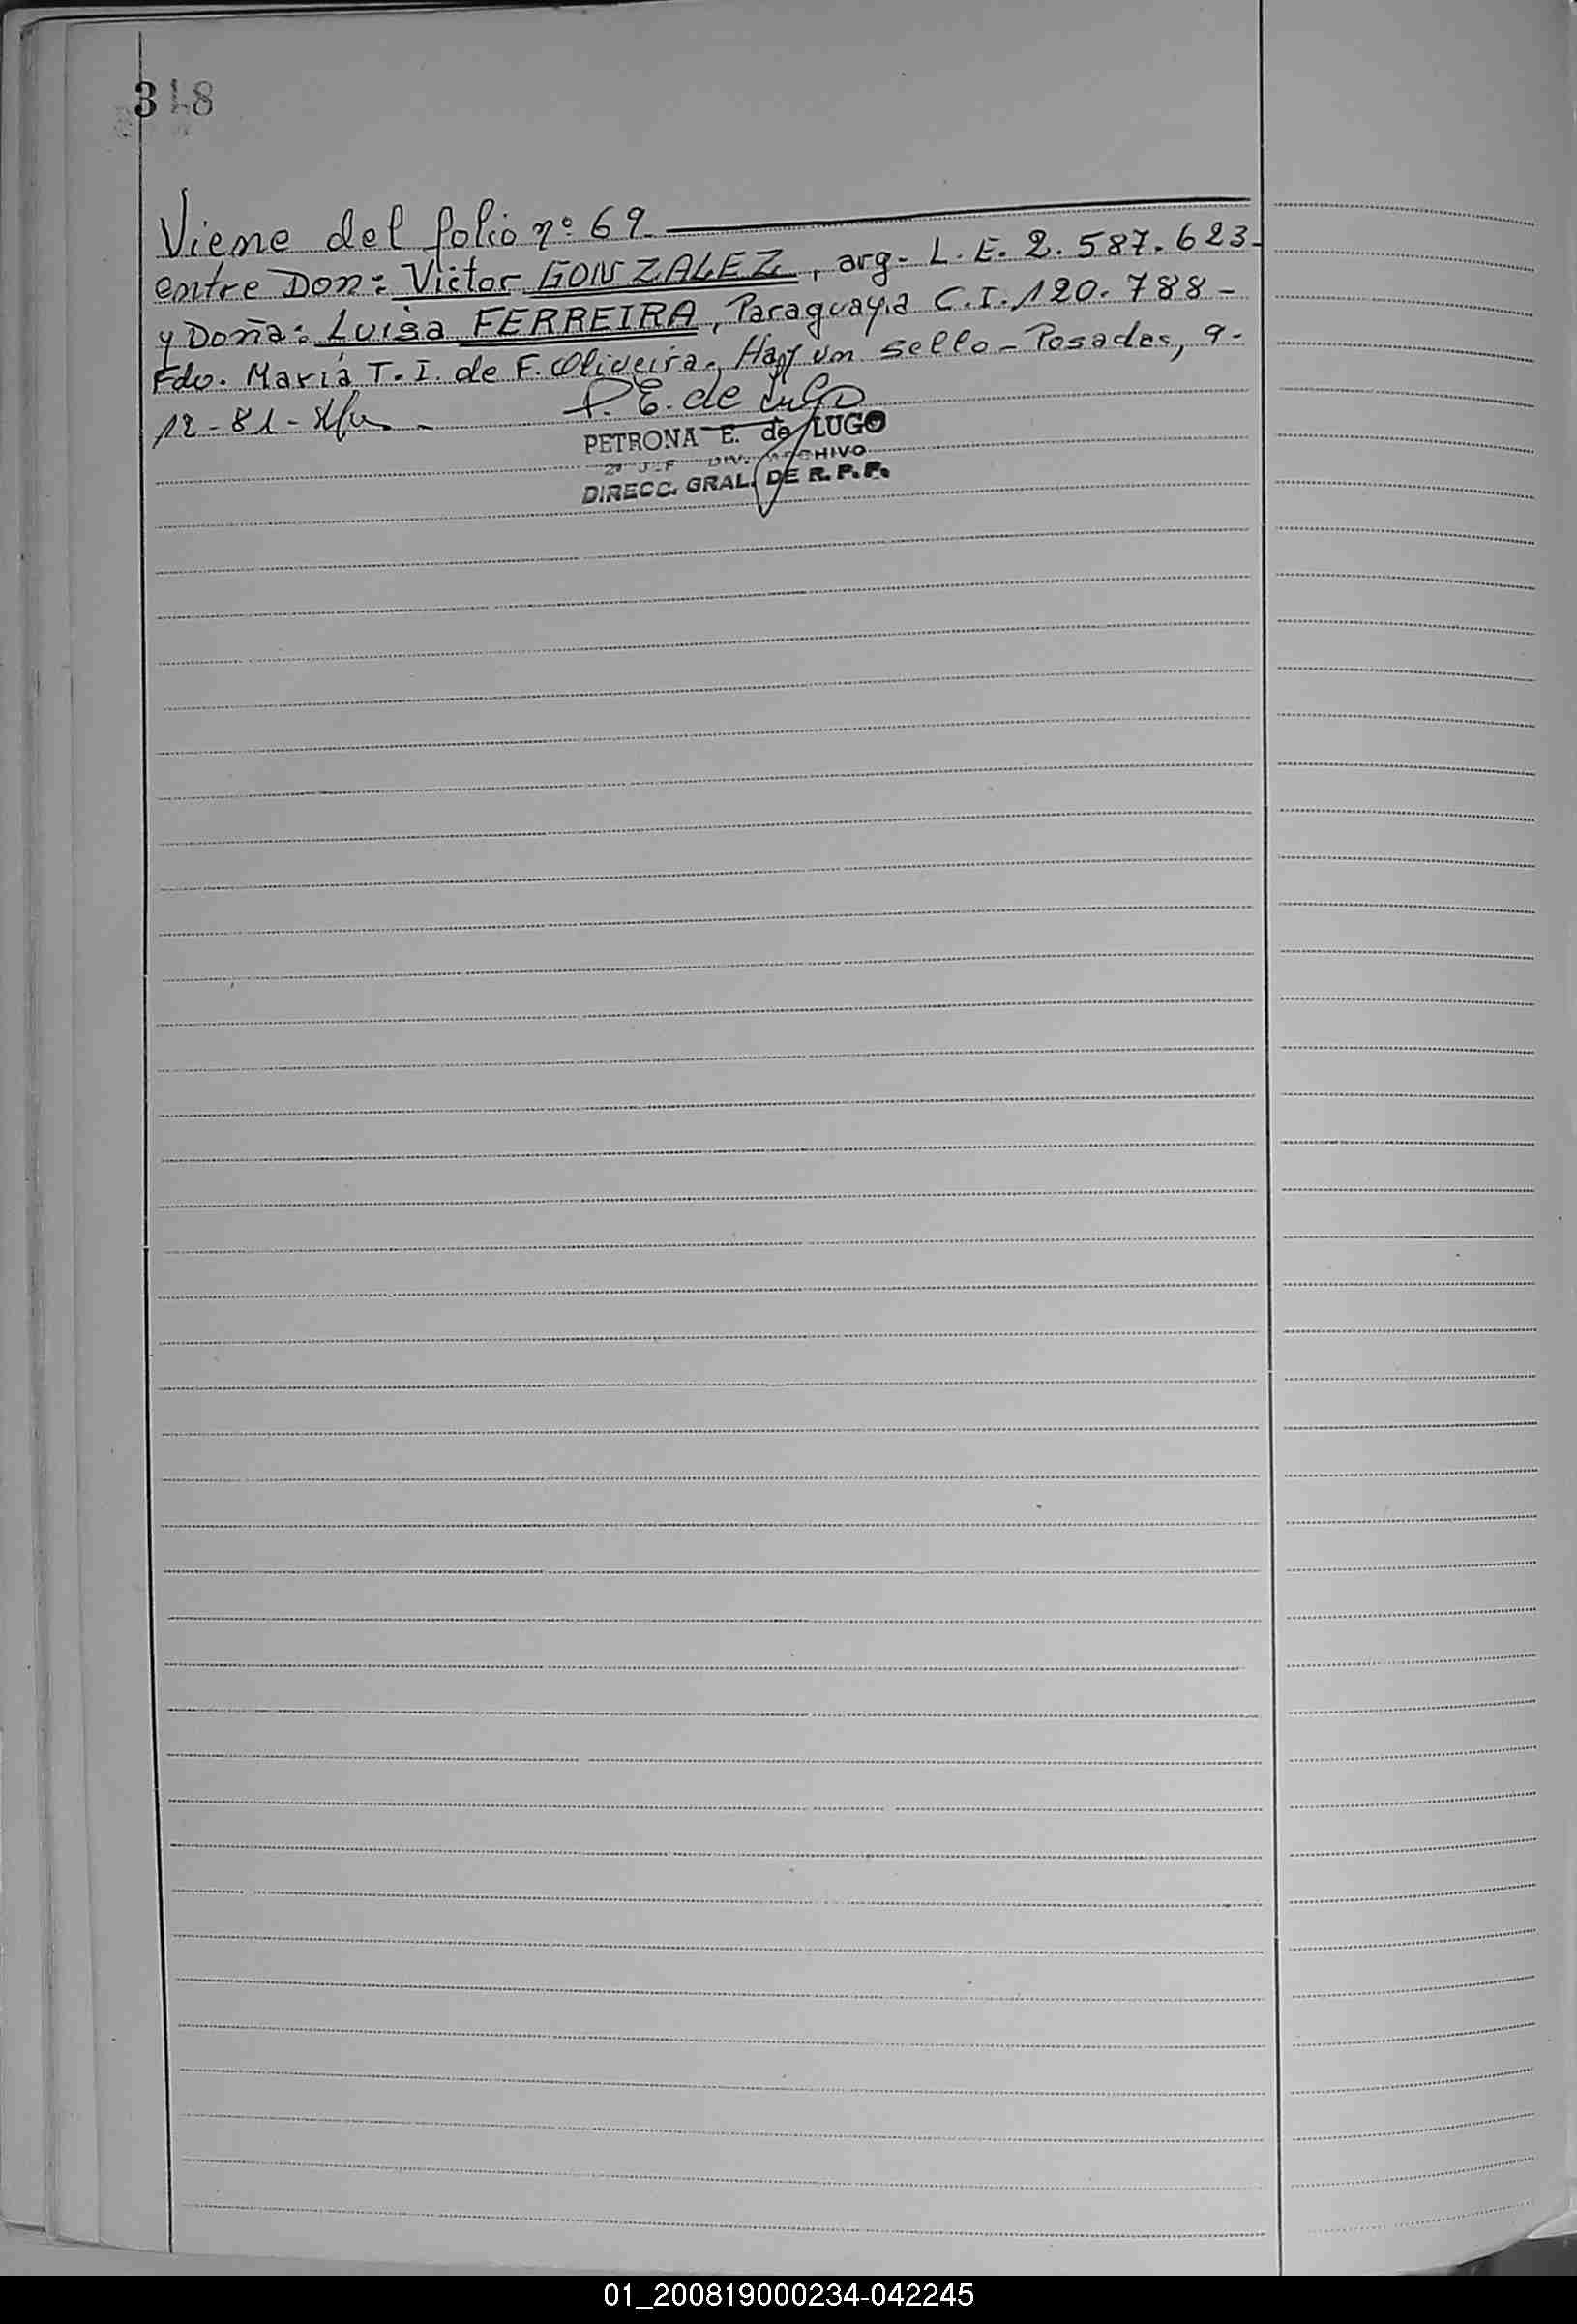 318
Viene del folio nº 69.
entre Don: Victor GONZALEZ, arg. L.E. 2.587.623-
y Doña: Luisa FERREIRA, Paraguaya C.I. 120.788-
Fdo. María T.I. de F. Oliveira. Hay un sello - Posadas, 9-
12-81-
P. E. de Lugo
PETRONA E. de LUGO
DIV. ARCHIVO
DIRECC. GRAL. DE R.P.P.
01_200819000234-042245